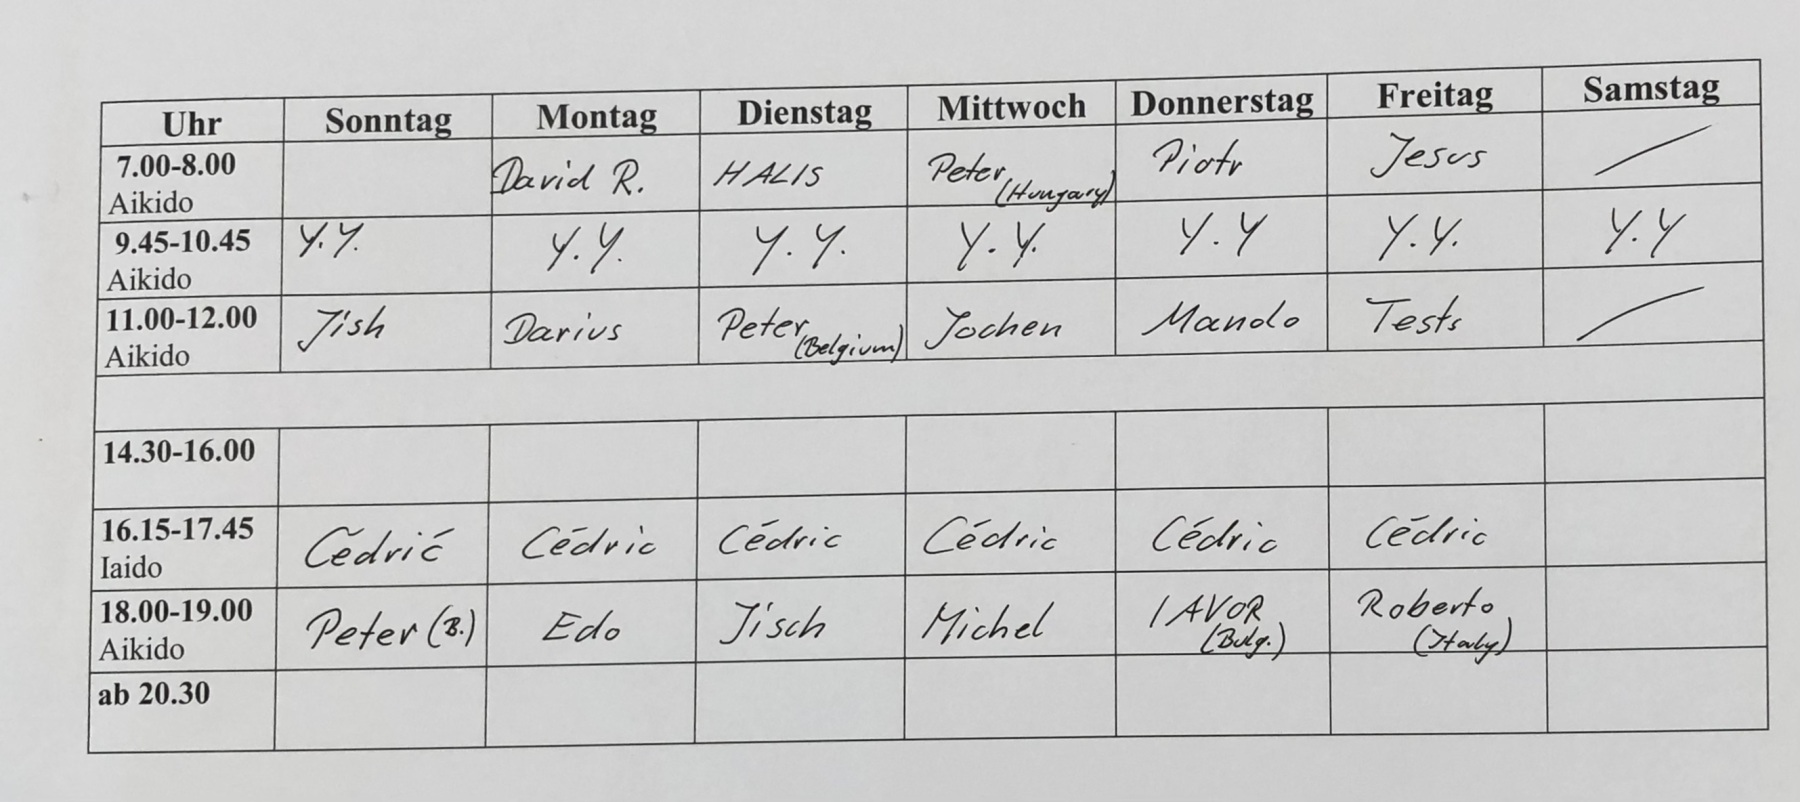 Uhr Sonntag Montag Dienstag Mittwoch Donnerstag Freitag Samstag
7.00-8.00 David R. HALIS Peter Piotr Jesus
Aikido (Hungary)
9.45-10.45 Y.Y. Y.Y. Y.Y. Y.Y. Y.Y Y.Y. Y.Y
Aikido
11.00-12.00 Jish Darius Peter Jochen Manolo Tests
Aikido (Belgium)
14.30-16.00
16.15-17.45 Cédrić Cédric Cédric Cédric Cédric Cédric
Iaido
18.00-19.00 Peter (B.) Edo Jisch Michel IAVOR Roberto
Aikido (Bulg.) (Italy)
ab 20.30